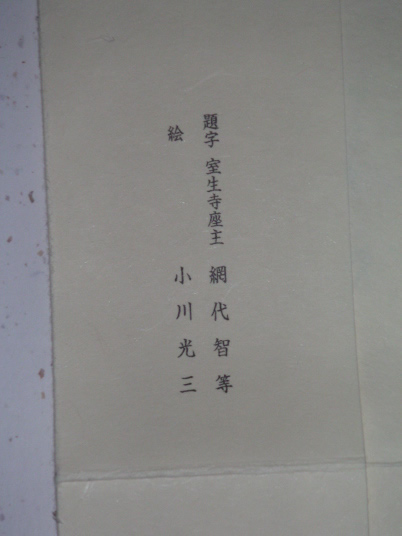 題字 室生寺座主 網代智等
絵 小川光三